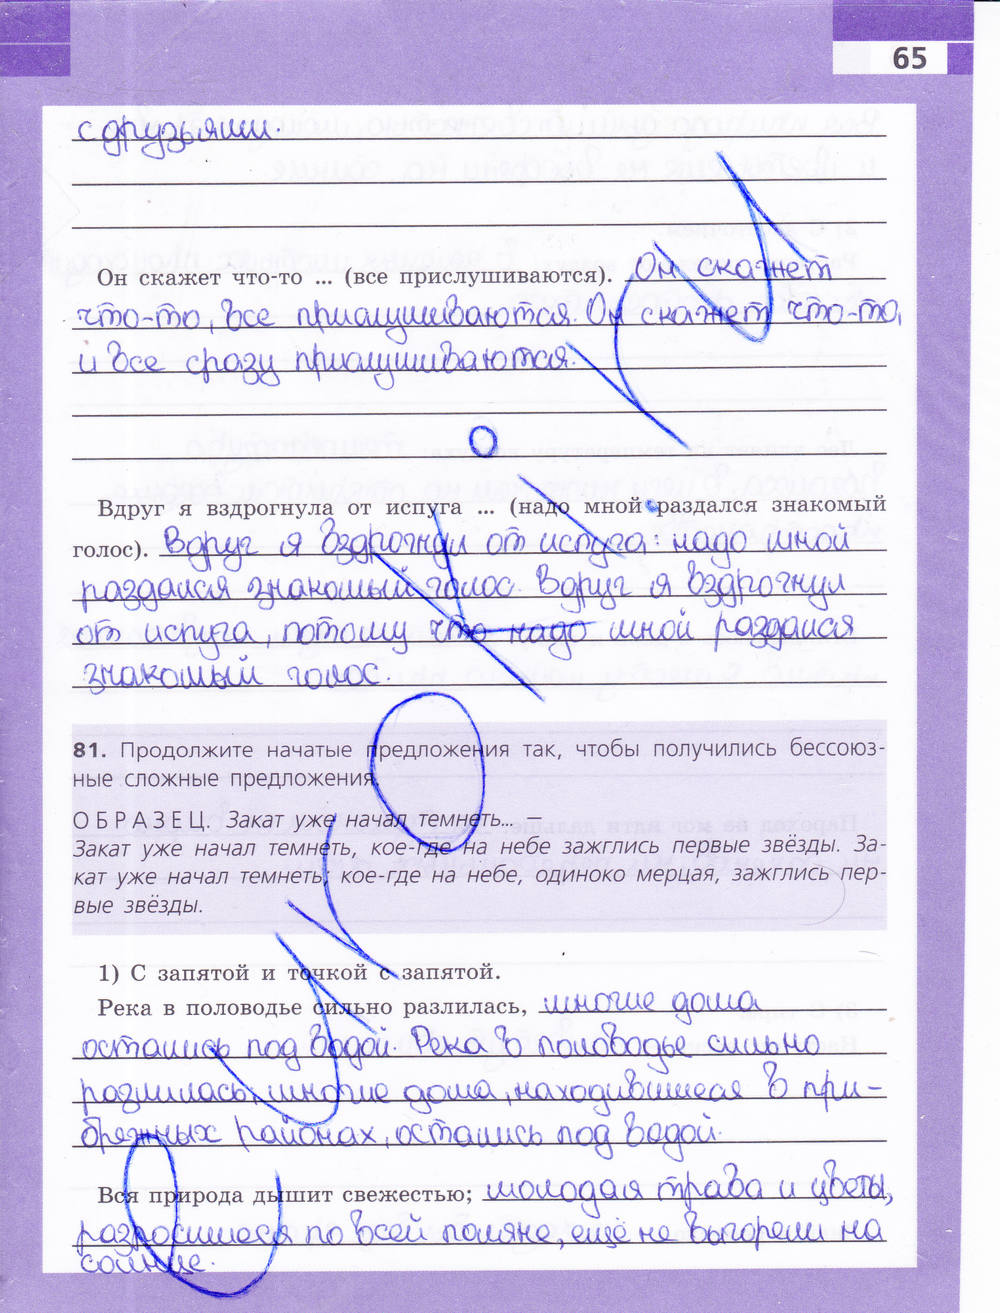 65
с друзьями.
Он скажет что-то ... (все прислушиваются). Он скажет
что-то, все прислушиваются. Он скажет что-то,
и все сразу прислушиваются.
Вдруг я вздрогнула от испуга ... (надо мной раздался знакомый
голос). Вдруг я вздрогнул от испуга: надо мной
раздался знакомый голос. Вдруг я вздрогнул
от испуга, потому что надо мной раздался
знакомый голос.
81. Продолжите начатые предложения так, чтобы получились бессоюз-
ные сложные предложения.
ОБРАЗЕЦ. Закат уже начал темнеть... —
Закат уже начал темнеть, кое-где на небе зажглись первые звёзды. За-
кат уже начал темнеть; кое-где на небе, одиноко мерцая, зажглись пер-
вые звёзды.
1) С запятой и точкой с запятой.
Река в половодье сильно разлилась, многие дома
остались под водой. Река в половодье сильно
разлилась; многие дома, находившиеся в при-
брежных районах, остались под водой.
Вся природа дышит свежестью; молодая трава и цветы,
разросшиеся по всей поляне, ещё не выгорели на
солнце.